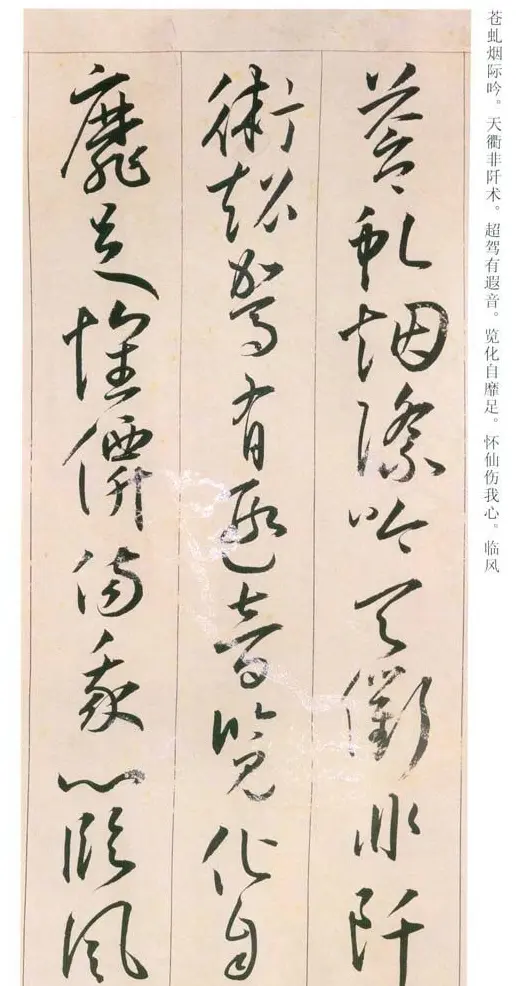 苍虬烟际吟。天衢非阡术。超驾有遐音。览化自靡足。怀仙伤我心。临风
苍虬烟际吟天衢非阡
術超駕有遐音览化自
靡足懷僊伤我心临风